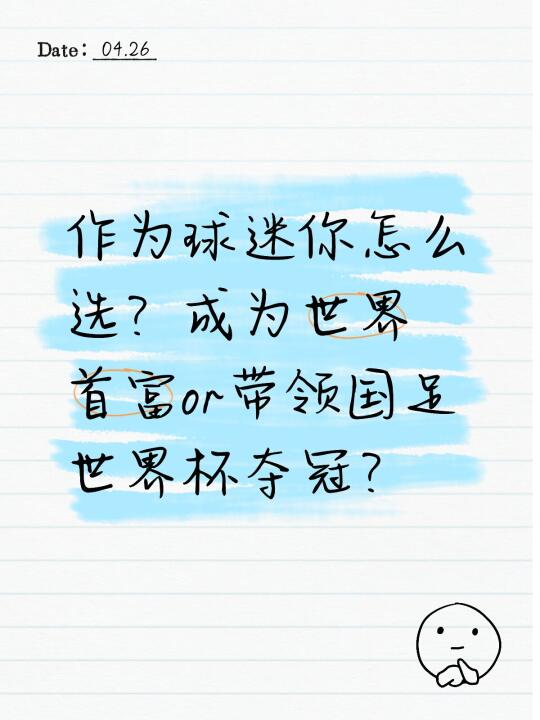 Date: 04.26
作为球迷你怎么
选？成为世界
首富or带领国足
世界杯夺冠？